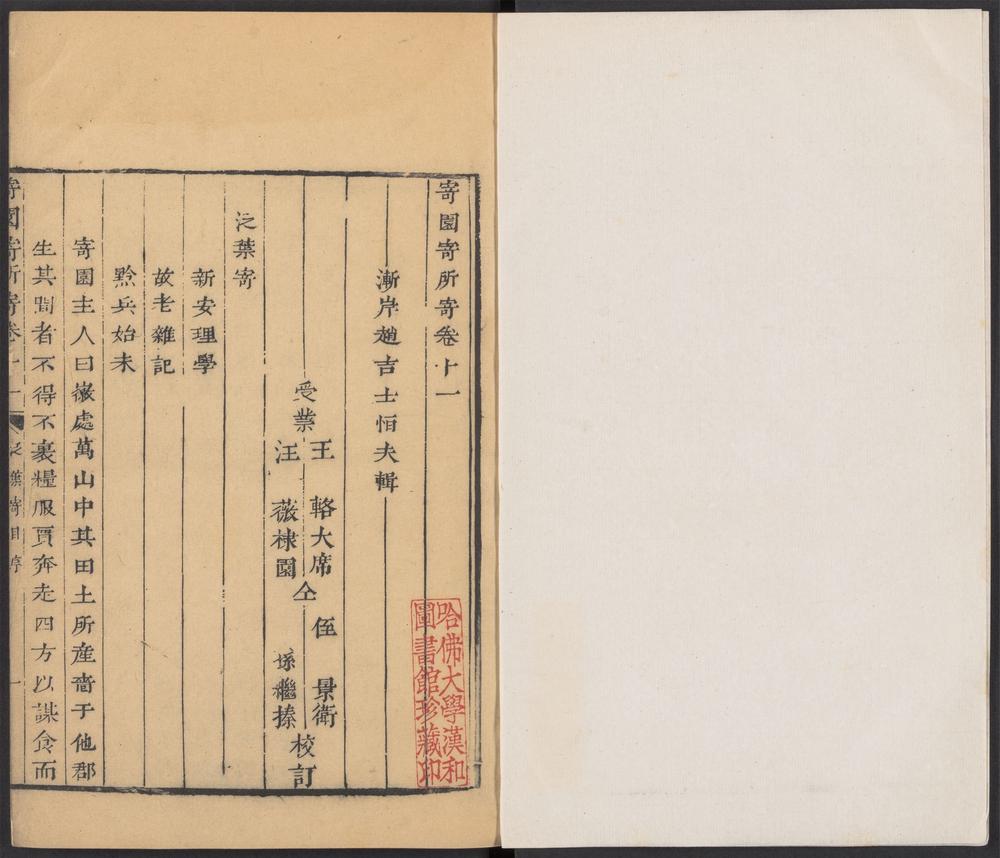 寄園寄所寄卷十一
漸岸趙吉士恒夫輯
受業
王 輅大席
汪 薇棣園
仝
侄 景衛
孫繼搸
校訂
泛葉寄
新安理學
故老雜記
黟兵始末
寄園主人曰徽處萬山中其田土所產嗇于他郡
生其間者不得不裹糧服賈奔走四方以謀食而
寄園寄所寄卷十一
一
哈佛大學漢和
圖書館珍藏印